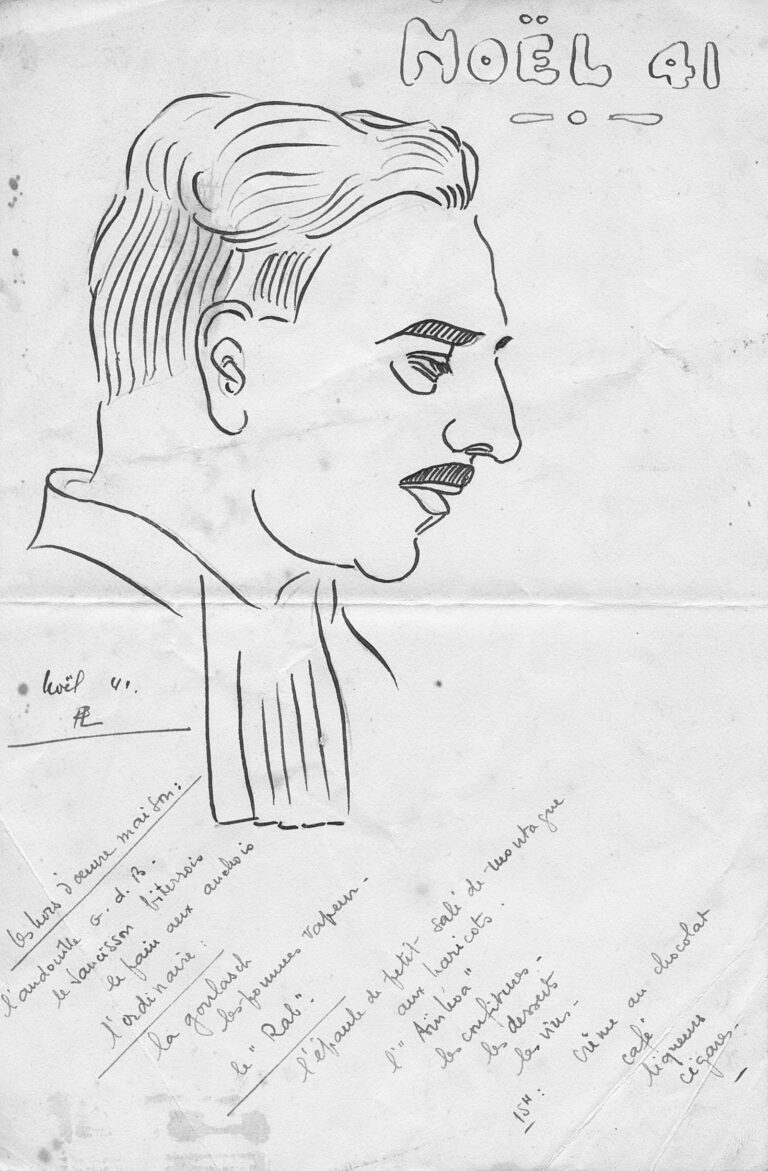 NOËL 41
Noël 41.
Les hors d'œuvre maison:
l'andouille G. d. B.
le saucisson biterrois
le pain aux anchois
l'ordinaire:
la goulasch
les pommes vapeur.
le "Rab".
l'épaule de petit salé de montagne
aux haricots.
l'"Aïnhoa"
les confitures.
les desserts
les vins.
15H: crème au chocolat
café
liqueurs
cigares.